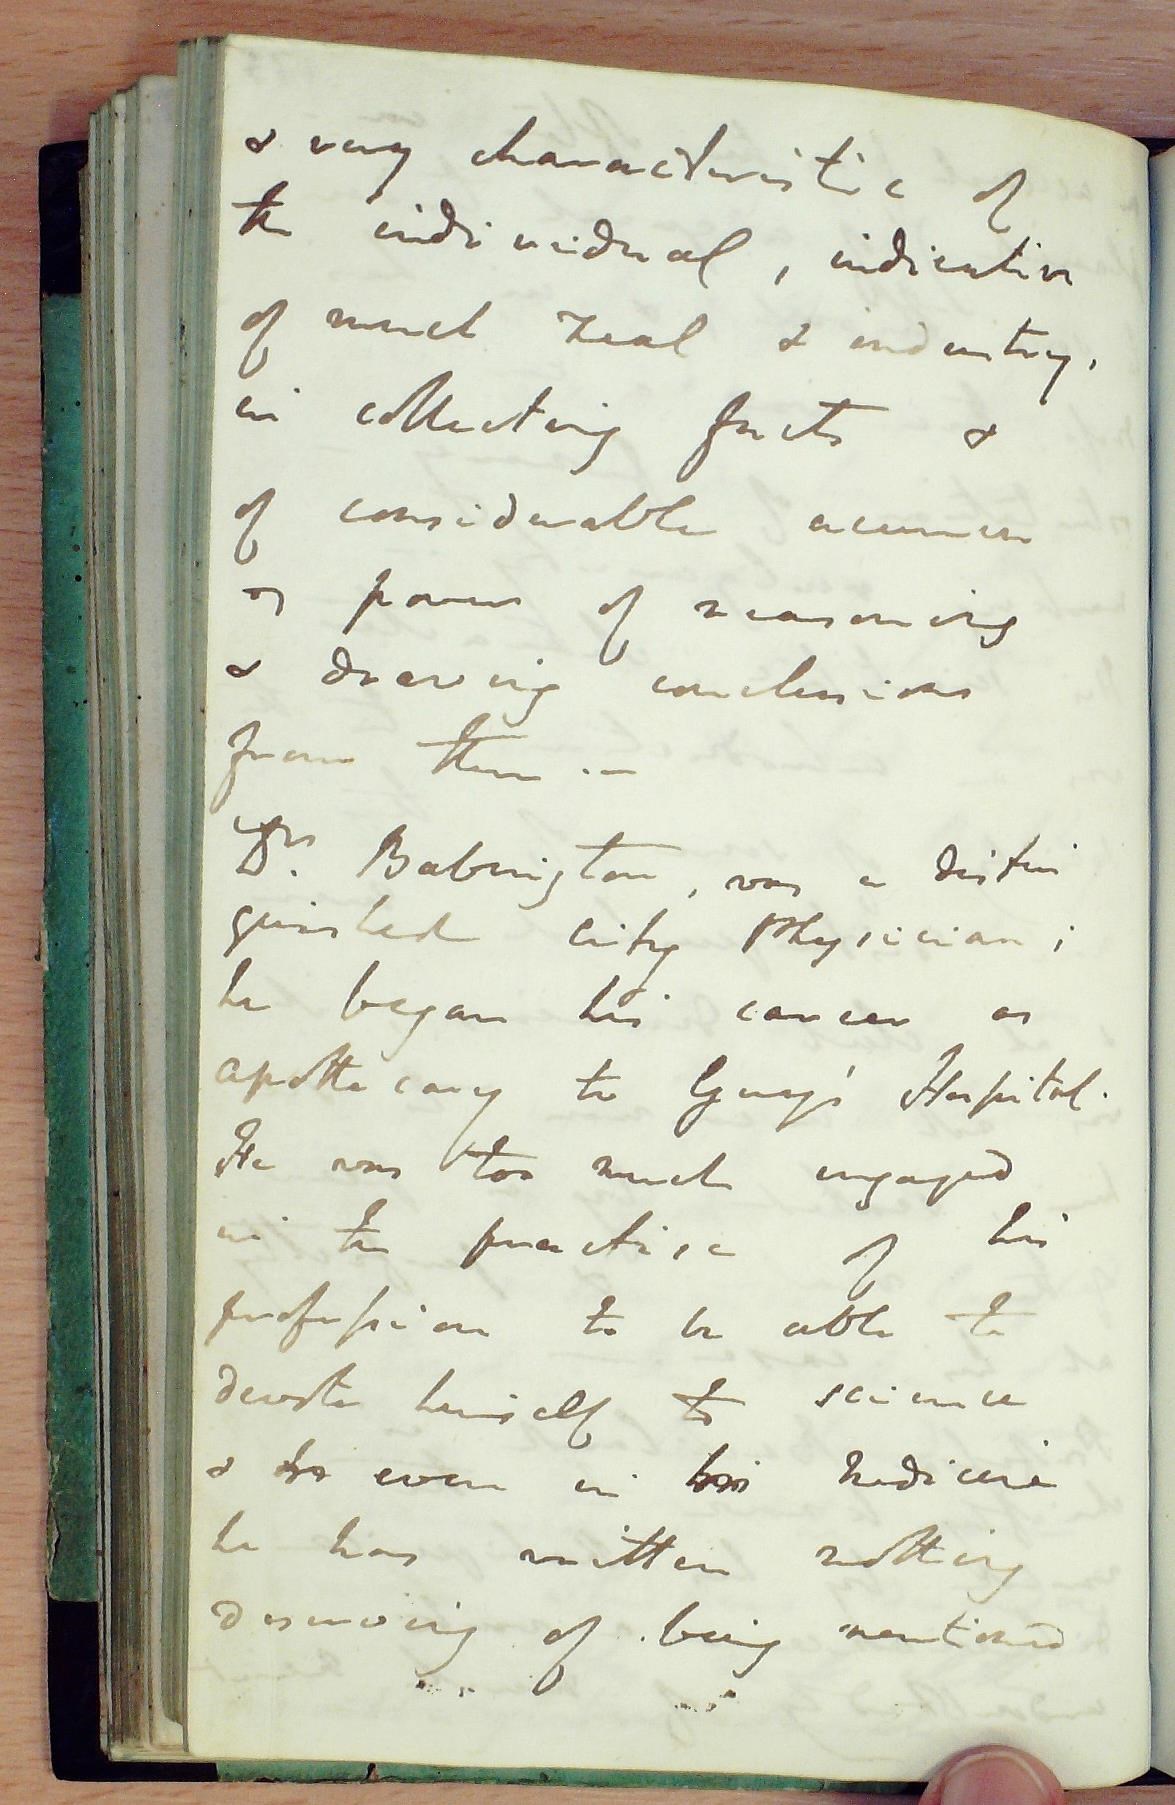 & very characteristic of
the individual, indicative
of much zeal & industry,
in collecting facts &
of considerable acumen
or power of reasoning
& drawing conclusions
from them .—
Dr. Babington, was a distin
guished city Physician;
he began his career as
apothecary to Guy's Hospital.
He was too much engaged
in the practise of his
profession to be able to
devote himself to science
& even in medicine
he has written nothing
deserving of being mentioned